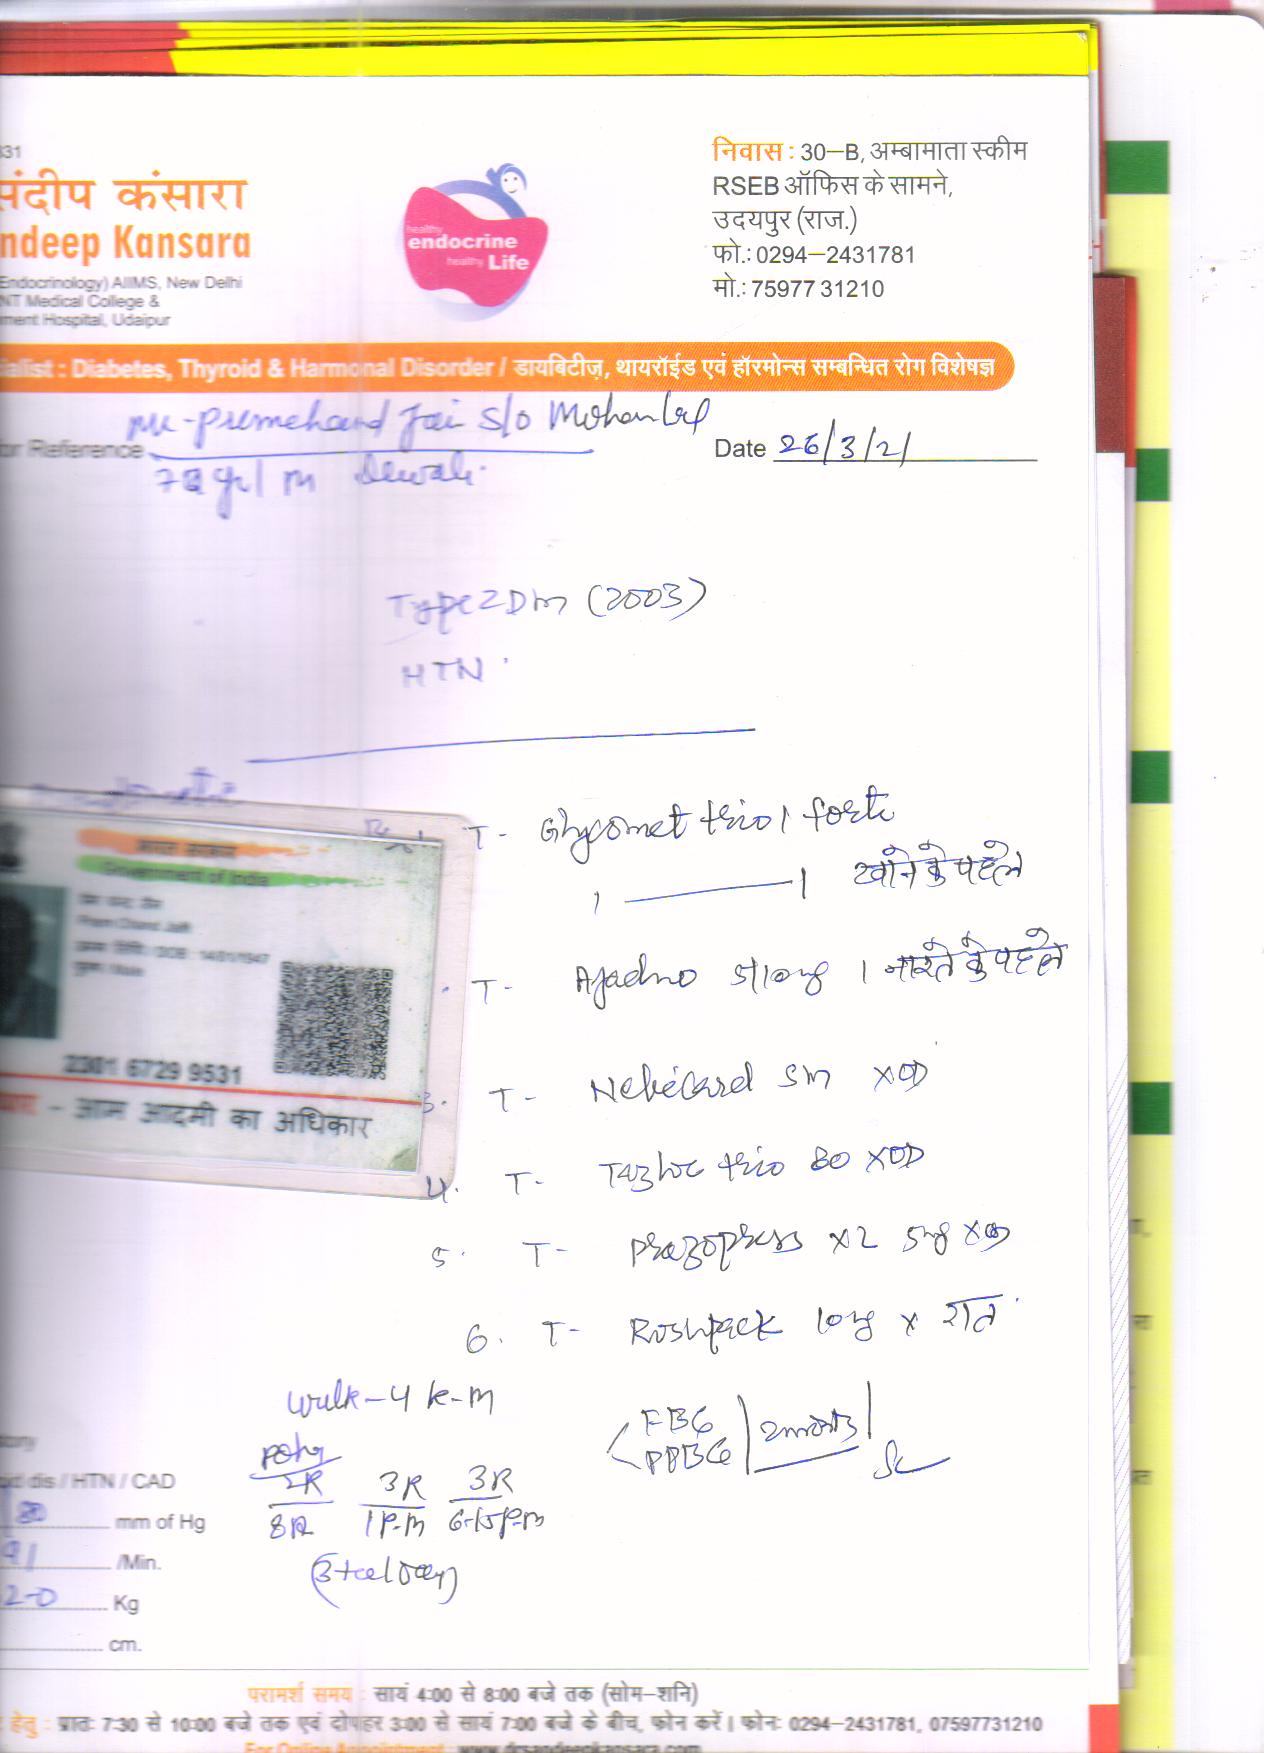 331
संदीप कंसारा
ndeep Kansara
Endocrinology) AIIMS, New Delhi
NT Medical College &
ment Hospital, Udaipur
healthy
endocrine
healthy Life
निवास : 30–B, अम्बामाता स्कीम
RSEB ऑफिस के सामने,
उदयपुर (राज.)
फो.: 0294–2431781
मो.: 75977 31210
ialist : Diabetes, Thyroid & Harmonal Disorder / डायबिटीज़, थायरॉईड एवं हॉरमोन्स सम्बन्धित रोग विशेषज्ञ
Premchand Jain S/o Mohanlal
or Reference
Date 26/3/21
yr/ m Dewali
Type 2 Dm (2003)
HTN
Rx
T- Glycomet trio 1 forte
1 ——— 1 खाने के पहले
T- Ajaduo 5/10mg 1 नाश्ते के पहले
3. T- Nebicard 5m XOD
4. T- Tazloc trio 80 XOD
5. T- Prazopress x2 5mg XOD
6. T- Roshpack 10mg x रात
भारत सरकार
Government of India
Prem Chand Jain
DOB : 14/01/1947
Male
2301 6729 9531
- आम आदमी का अधिकार
walk-4 k-m
2R 3R 3R
8R 1 P-m 6-15 P-m
FBG
PPBG
dis / HTN / CAD
80 mm of Hg
91 /Min.
2-0 Kg
cm.
परामर्श समय : सायं 4:00 से 8:00 बजे तक (सोम–शनि)
हेतु : प्रातः 7:30 से 10:00 बजे तक एवं दोपहर 3:00 से सायं 7:00 बजे के बीच, फोन करें। फोनः 0294-2431781, 07597731210
For Online Appointment : www.drsandeepkansara.com